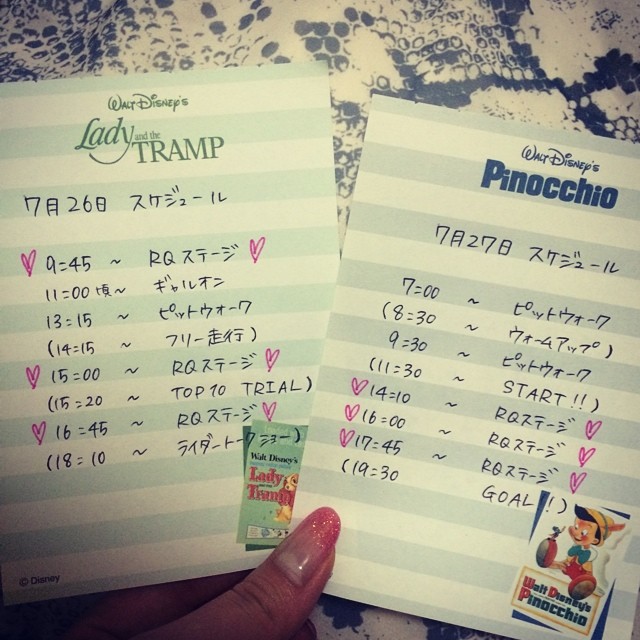 WALT DISNEY'S
Lady and the TRAMP
7月26日 スケジュール
9:45 ~ RQステージ
11:00頃~ ギャルオン
13:15 ~ ピットウォーク
(14:15 ~ フリー走行)
15:00 ~ RQステージ
(15:20 ~ TOP10 TRIAL)
16:45 ~ RQステージ
(18:10 ~ ライダートークショー)
Walt Disney's
Lady and the Tramp
© Disney
WALT DISNEY'S
Pinocchio
7月27日 スケジュール
7:00 ~ ピットウォーク
(8:30 ~ ウォームアップ)
9:30 ~ ピットウォーク
(11:30 ~ START!!)
14:10 ~ RQステージ
16:00 ~ RQステージ
17:45 ~ RQステージ
(19:30 GOAL!)
Walt Disney's
Pinocchio